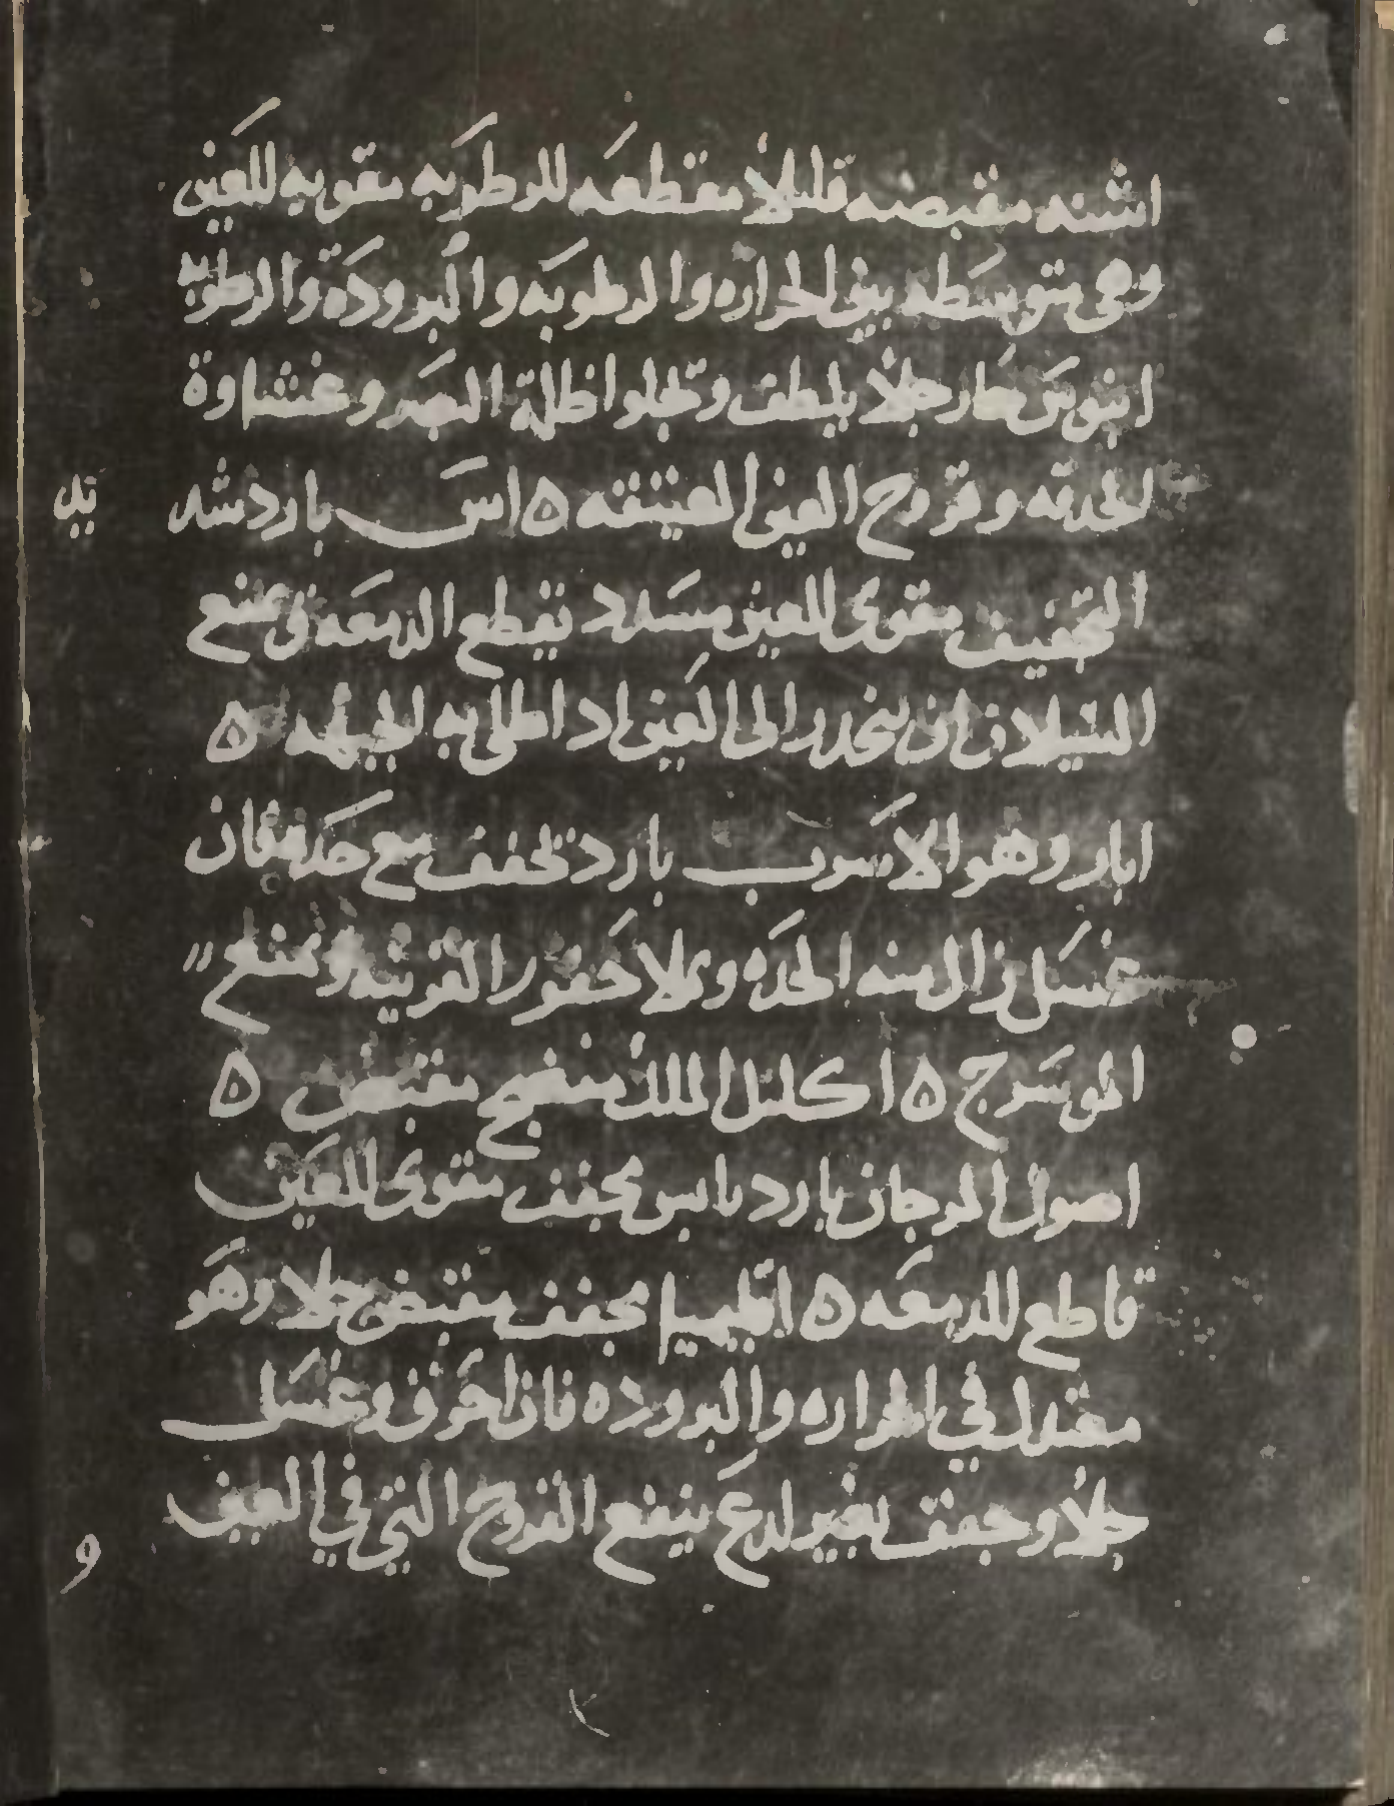 اشنه مقبضه قليلا مقطعه للرطوبه مقويه للعين
وهى متوسطه بين الحراره والرطوبه والبروده والرطوبه
ابنوس حار جلا يلطف وتجلوا ظلمة البصر وغشاوة
الحدقه وقروح العين العتيقه ٥ اس بارد شد يد
التجفيف مقوى للعين مسدد تقطع الدمعه و تمنع
السيلان ان ينحدر الى العين اذ اطلى به الجبهه ٥
ابار وهو الاسرب بارد تجفف مع حده فان
غسل زال منه الحده ويملا حفور القرنيه و تمنع
الموسرج ٥ اكليل الملك منضج مقبض ٥
اصول المرجان بارد يابس مجفف مقوى للعين
قاطع للدمعه ٥ اقليميا مجفف مقبض جلا وهو
معتدل في الحراره والبروده فان احرق وغسل
جلا وجفف بغير لدع ينفع القروح التي في العين
و